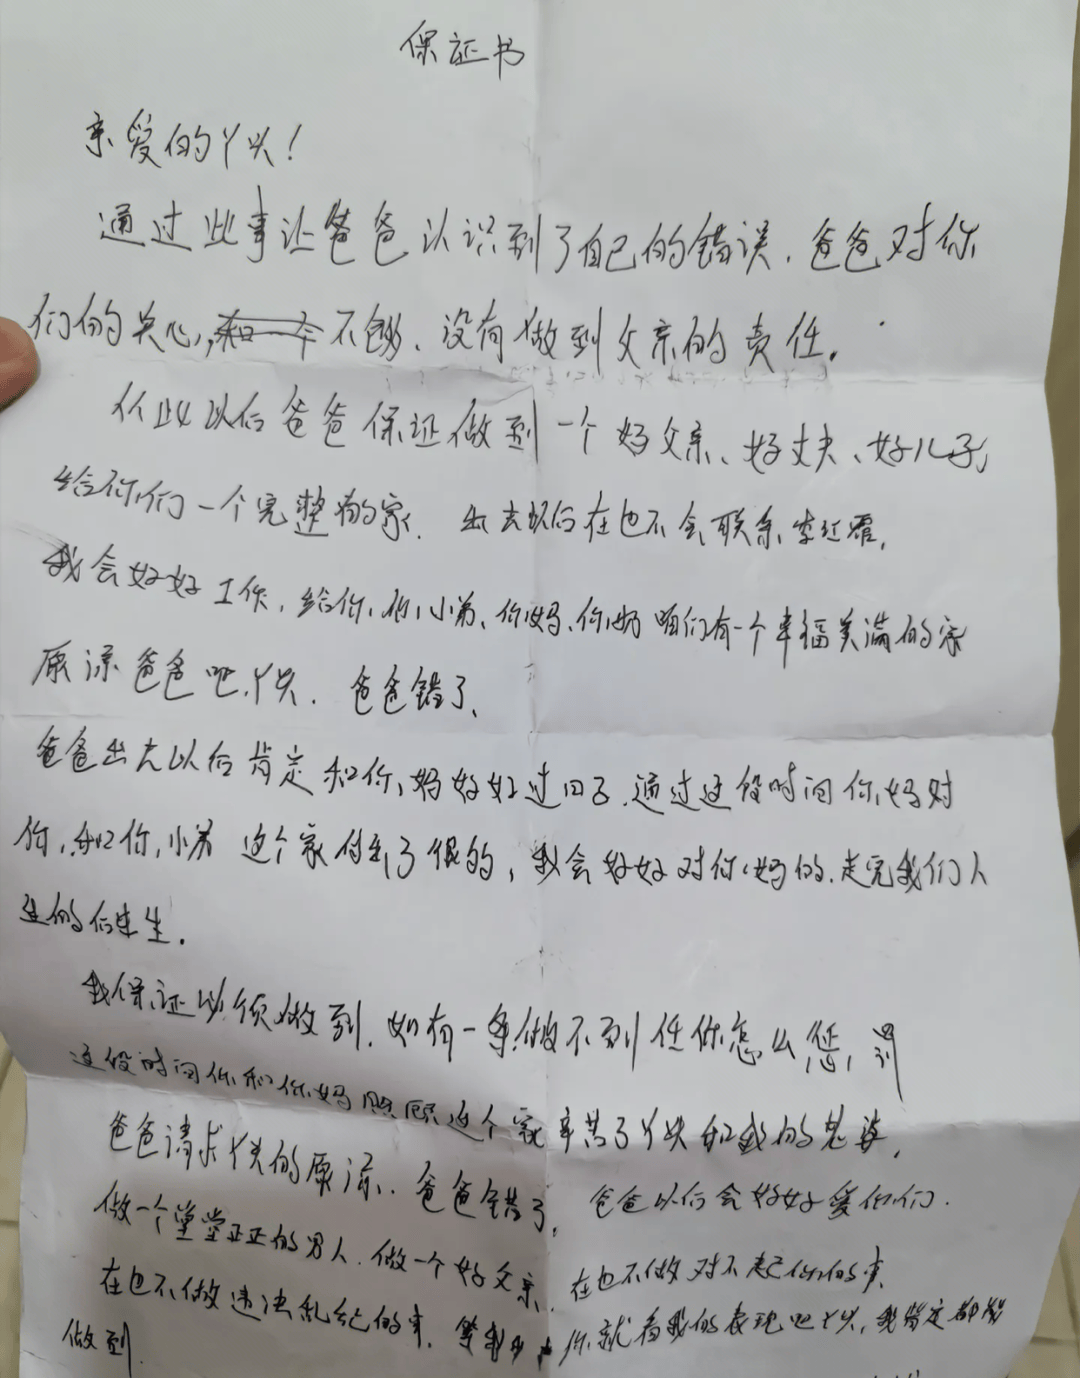 保证书
亲爱的丫头！
通过此事让爸爸认识到了自己的错误.爸爸对你
们的关心,不够、没有做到父亲的责任.
从此以后爸爸保证做到一个好父亲、好丈夫、好儿子,
给你们一个完整的家.出去以后在也不会联系李红霞,
我会好好工作,给你,你小弟、你妈、你奶咱们有一个幸福美满的家
原谅爸爸吧,丫头.爸爸错了、
爸爸出去以后肯定和你妈好好过日子.通过这段时间你妈对
你,和你小弟这个家付出了很的,我会好好对你妈的.走完我们人
生的后半生.
我保证必须做到.如有一条做不到任你怎么惩罚
这段时间你和你妈照顾这个家辛苦了丫头和我的老婆,
爸爸请求丫头的原谅.爸爸错了,爸爸以后会好好爱你们.
做一个堂堂正正的男人.做一个好父亲.在也不做对不起你们的事.
在也不做违法乱纪的事.等我出去你就看我的表现吧丫头,我肯定都能
做到.